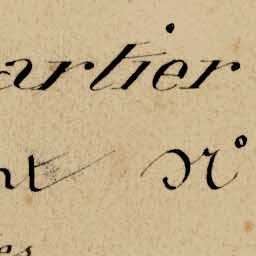 artier
nt N°
es